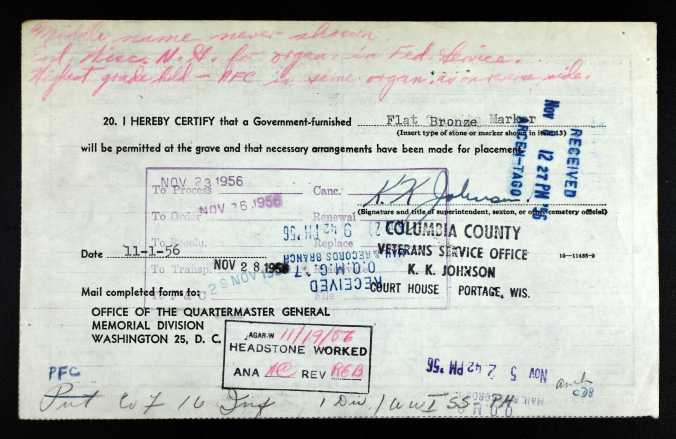 Middle name never shown
Enl, Wisc. N. G. for organ. in Fed. Service.
Highest grade held - PFC in same organ. as on reverse side.
20. I HEREBY CERTIFY that a Government-furnished Flat Bronze Marker
(Insert type of stone or marker shown in item 13)
will be permitted at the grave and that necessary arrangements have been made for placement.
RECEIVED
NOV 12 27 PM '56
AFCEN-TAGO
NOV 23 1956
To Process
Canc.
K. K. Johnson
NOV 16 1956
(Signature and title of superintendent, sexton, or other cemetery official)
To Order
Renewal
2 42 PM '56
COLUMBIA COUNTY
Replace
Date 11-1-56
MAIL & RECORDS BRANCH
VETERANS SERVICE OFFICE
16-11465-9
To Transp.
NOV 28 1956
O.Q.M.G. 7
K. K. JOHNSON
28 NOV 1956
RECEIVED
COURT HOUSE PORTAGE, WIS.
Mail completed forms to:
File
OFFICE OF THE QUARTERMASTER GENERAL
MEMORIAL DIVISION
WASHINGTON 25, D. C.
AGAR-W 11/19/56
HEADSTONE WORKED
ANA AC REV REB
NOV 5 2 42 PM '56
MAIL & RECORDS
O Q M
PFC
Pvt Co F 16 Inf 1 Div / WW I SS - PH